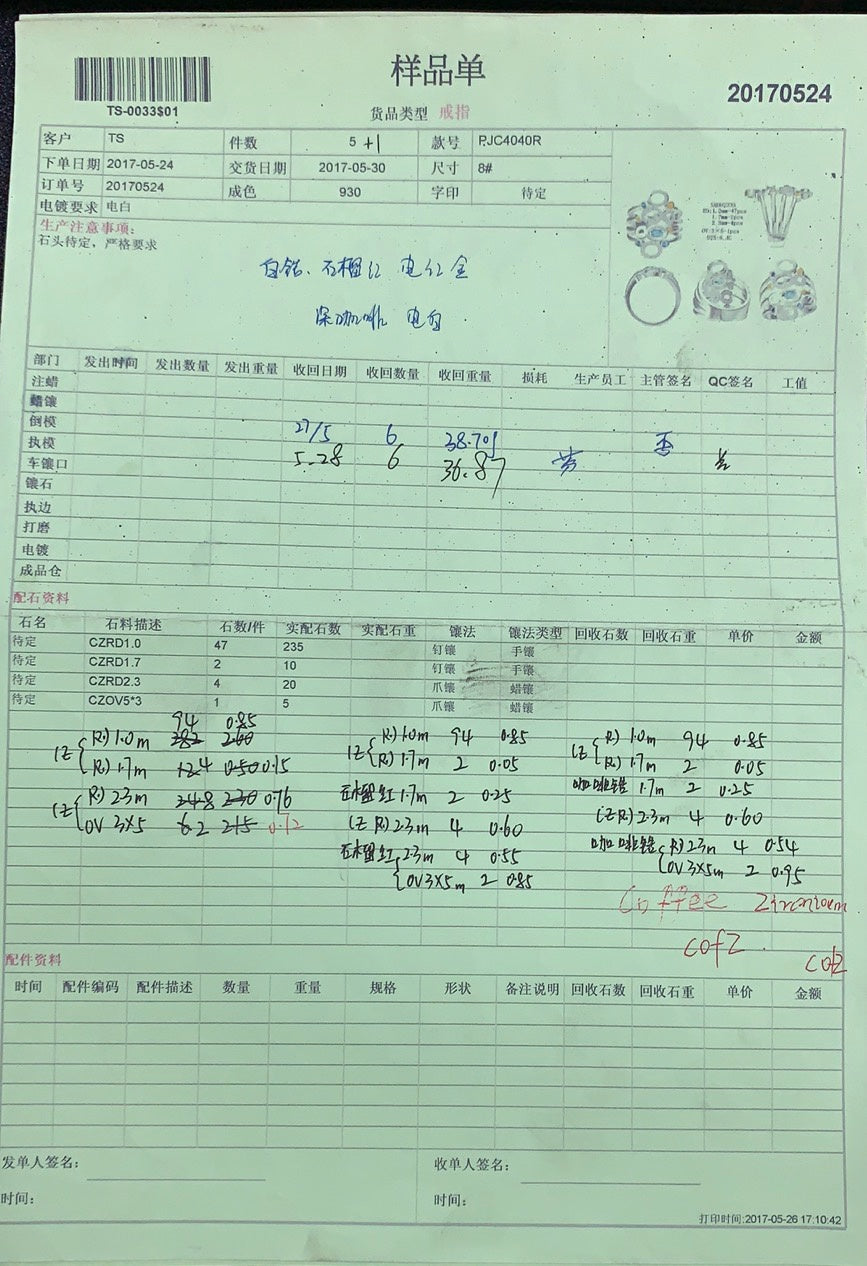 样品单
20170524
TS-0033$01
货品类型 戒指
客户 TS 件数 5 +1 款号 PJC4040R
下单日期 2017-05-24 交货日期 2017-05-30 尺寸 8#
订单号 20170524 成色 930 字印 待定
电镀要求 电白
生产注意事项:
石头待定，严格要求
白锆、石榴红 电红金
深咖啡 电白
部门 发出时间 发出数量 发出重量 收回日期 收回数量 收回重量 损耗 生产员工 主管签名 QC签名 工值
注蜡
蜡镶
倒模
执模 27/5 6 38.70
车镶口 5.28 6 36.87
镶石
执边
打磨
电镀
成品仓
配石资料
石名 石料描述 石数/件 实配石数 实配石重 镶法 镶法类型 回收石数 回收石重 单价 金额
待定 CZRD1.0 47 235 钉镶 手镶
待定 CZRD1.7 2 10 钉镶 手镶
待定 CZRD2.3 4 20 爪镶 蜡镶
待定 CZOV5*3 1 5 爪镶 蜡镶
94 0.85
R) 1.0m 282 2.60
R) 1.7m 12 4 0.50 0.15
R) 2.3m 24 8 2.30 0.76
OV 3X5 6 2 2.15 0.72
R) 1.0m 94 0.85
R) 1.7m 2 0.05
石榴红 1.7m 2 0.25
CZ R) 2.3m 4 0.60
石榴红 2.3m 4 0.55
OV 3X5m 2 0.85
R) 1.0m 94 0.85
R) 1.7m 2 0.05
咖啡锆 1.7m 2 0.25
CZ R) 2.3m 4 0.60
咖啡锆 R) 2.3m 4 0.54
OV 3X5m 2 0.95
Coffee Zirconium
cofZ
cofZ
配件资料
时间 配件编码 配件描述 数量 重量 规格 形状 备注说明 回收石数 回收石重 单价 金额
发单人签名: 收单人签名:
时间: 时间:
打印时间:2017-05-26 17:10:42